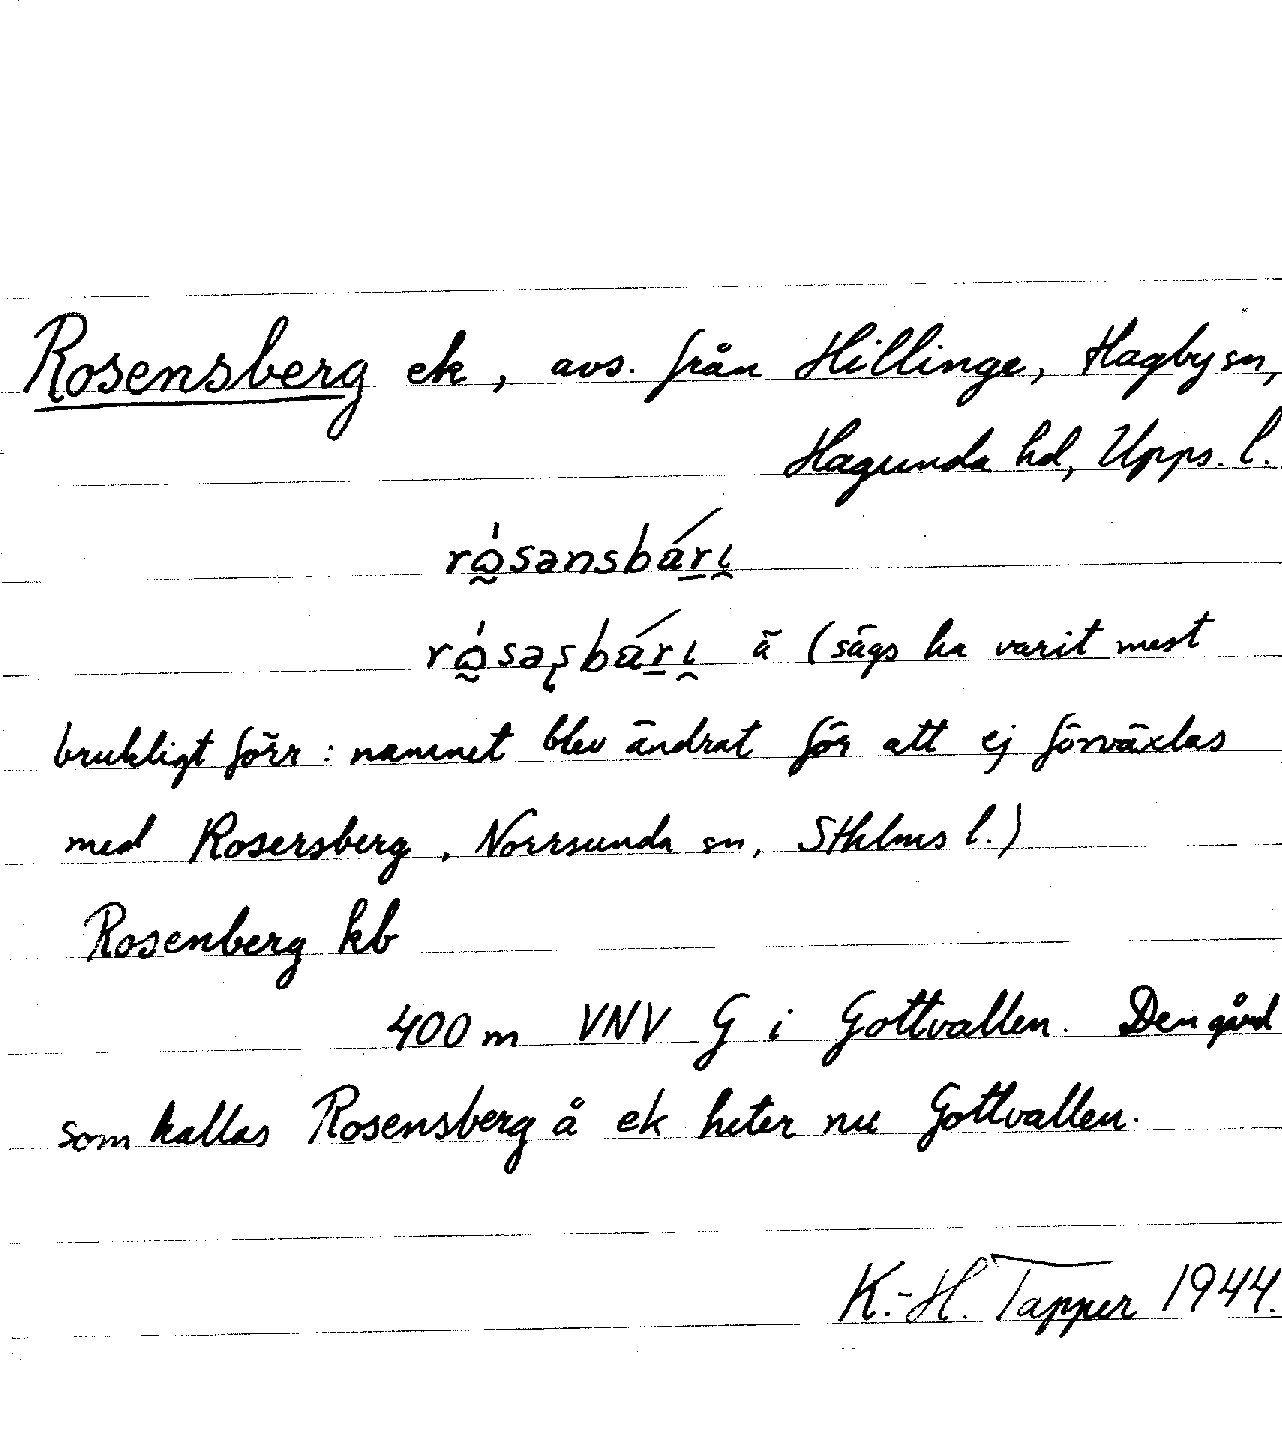 Rosensberg ek, avs. från Hillinge, Hagby sn,
Hagunda hd, Upps. l.
rɷ̰́sansbári̯
rɷ̰́səʂbári̯ ä (sägs ha varit mest
brukligt förr: namnet blev ändrat för att ej förväxlas
med Rosersberg, Norrsunda sn, Sthlms l.)
Rosenberg kb
400 m VNV G i Gottvallen. Den gård
som kallas Rosensberg å ek heter nu Gottvallen.
K.-H. Tapper 1944.